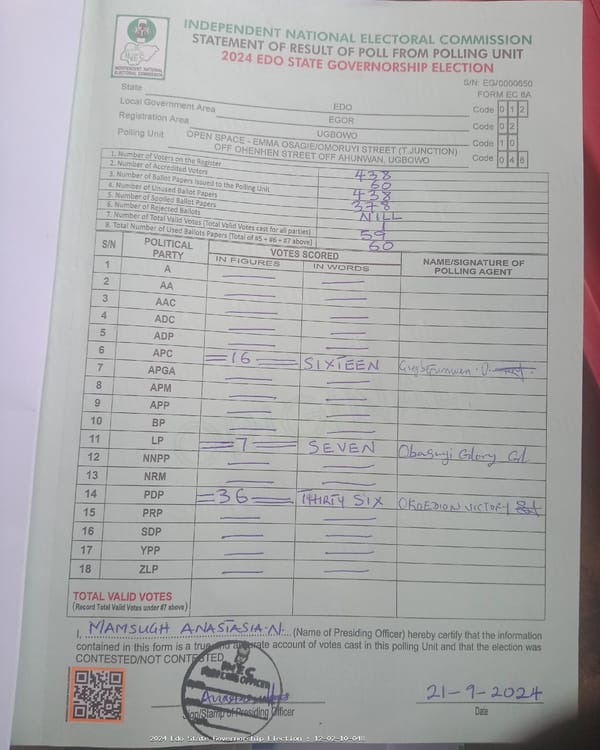 INDEPENDENT NATIONAL ELECTORAL COMMISSION
STATEMENT OF RESULT OF POLL FROM POLLING UNIT
2024 EDO STATE GOVERNORSHIP ELECTION
INEC
INDEPENDENT NATIONAL
ELECTORAL COMMISSION
S/N: EG/0000650
FORM EC 8A
State EDO Code 0 1 2
Local Government Area EGOR Code 0 2
Registration Area UGBOWO Code 1 0
Polling Unit OPEN SPACE - EMMA OSAGIE/OMORUYI STREET (T.JUNCTION) OFF OHENHEN STREET OFF AHUNWAN, UGBOWO Code 0 4 8
1. Number of Voters on the Register 438
2. Number of Accredited Voters 60
3. Number of Ballot Papers Issued to the Polling Unit 438
4. Number of Unused Ballot Papers 378
5. Number of Spoiled Ballot Papers NILL
6. Number of Rejected Ballots 1
7. Number of Total Valid Votes (Total Valid Votes cast for all parties) 59
8. Total Number of Used Ballots Papers (Total of #5 + #6 + #7 above) 60
S/N POLITICAL PARTY VOTES SCORED NAME/SIGNATURE OF POLLING AGENT
IN FIGURES IN WORDS
1 A
2 AA
3 AAC
4 ADC
5 ADP
6 APC =16= SIXTEEN
7 APGA
8 APM
9 APP
10 BP
11 LP =7= SEVEN Obasuyi Glory
12 NNPP
13 NRM
14 PDP =36= THIRTY SIX OKOEDION VICTORY
15 PRP
16 SDP
17 YPP
18 ZLP
TOTAL VALID VOTES
(Record Total Valid Votes under #7 above)
I, MAMSUGH ANASTASIA.N. (Name of Presiding Officer) hereby certify that the information
contained in this form is a true and accurate account of votes cast in this polling Unit and that the election was
CONTESTED/NOT CONTESTED
INEC
21-9-2024
Sign/Stamp of Presiding Officer Date
2024 Edo State Governorship Election : 12-02-10-048